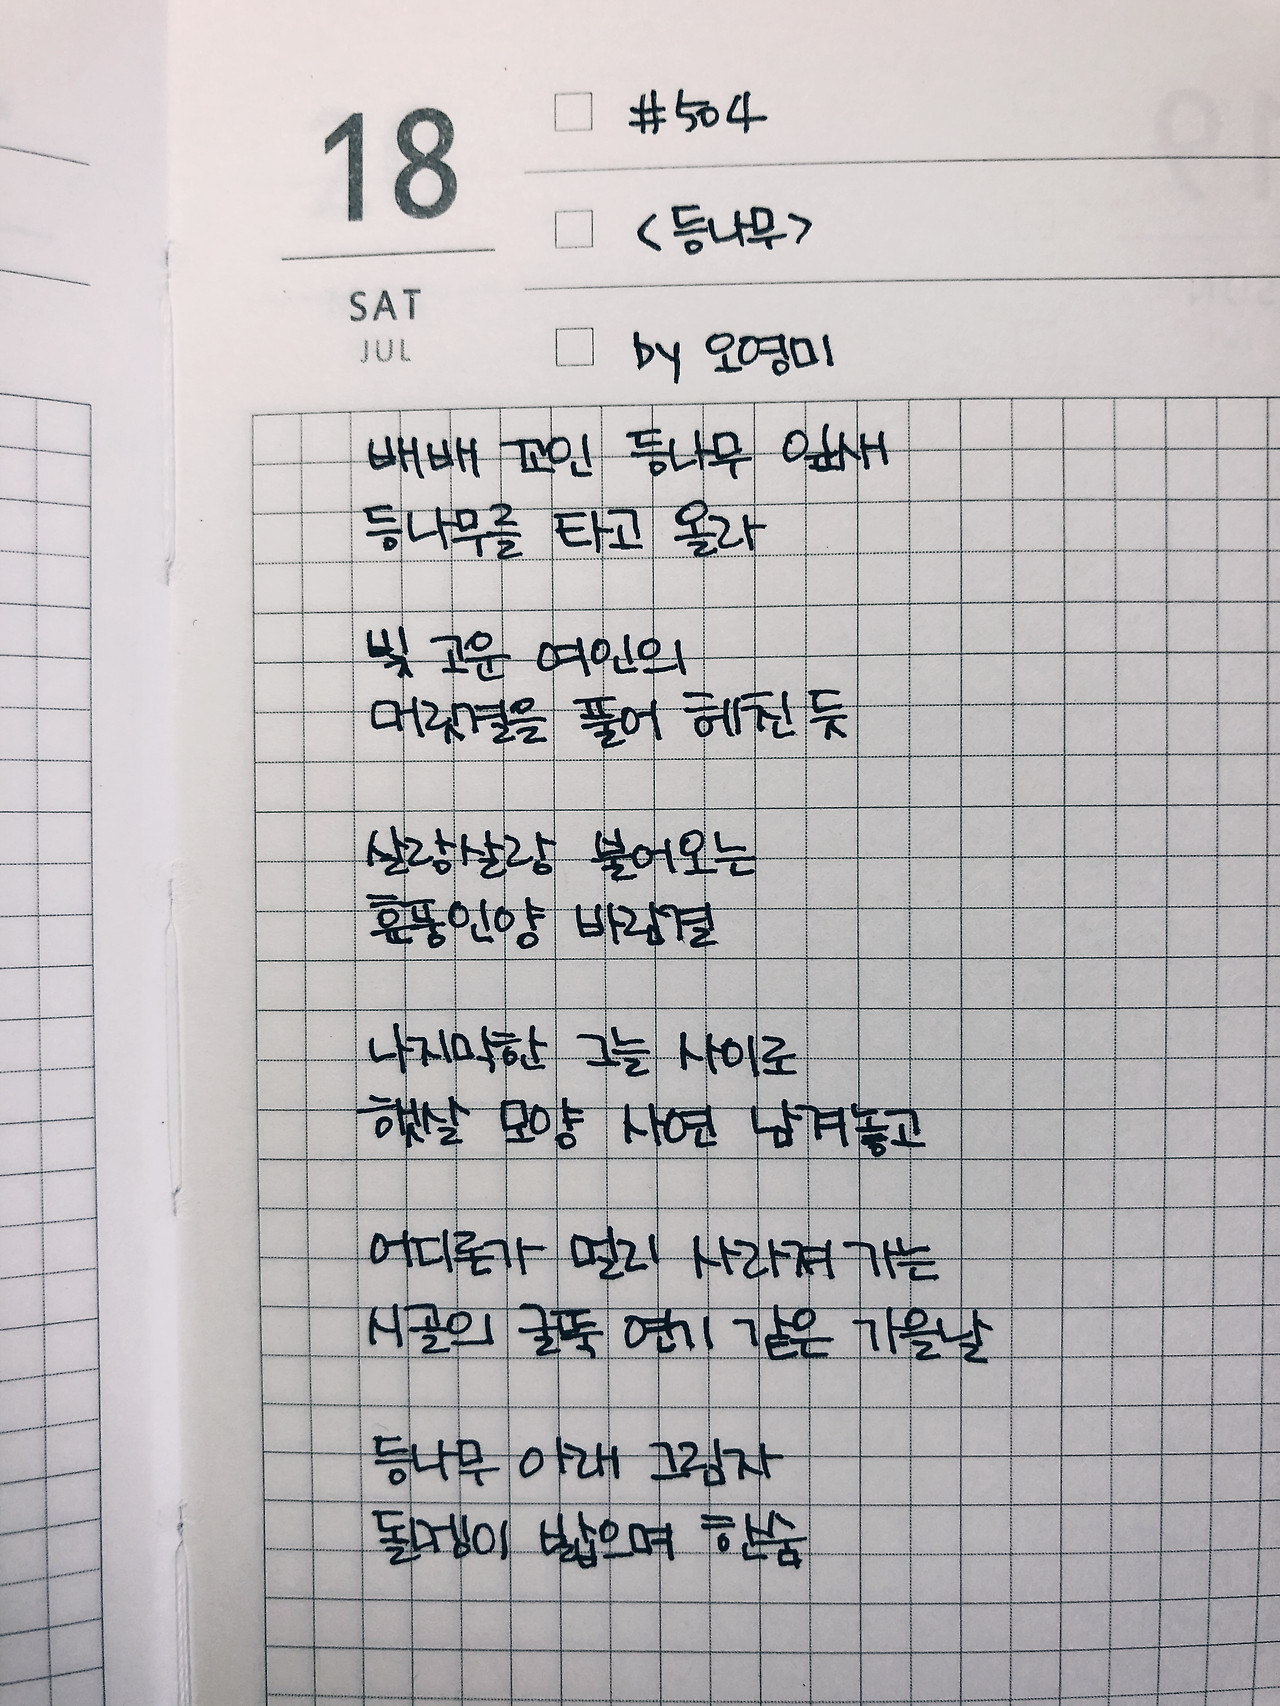 18
SAT
JUL
#504
<등나무>
by 오영미
배배 꼬인 등나무 잎새
등나무를 타고 올라
빛 고운 여인의
머릿결을 풀어 헤친 듯
살랑살랑 불어오는
훈풍인양 바람결
나지막한 그늘 사이로
햇살 모양 사연 남겨놓고
어디론가 멀리 사라져 가는
시골의 굴뚝 연기 같은 가을날
등나무 아래 그림자
돌멩이 밟으며 한숨